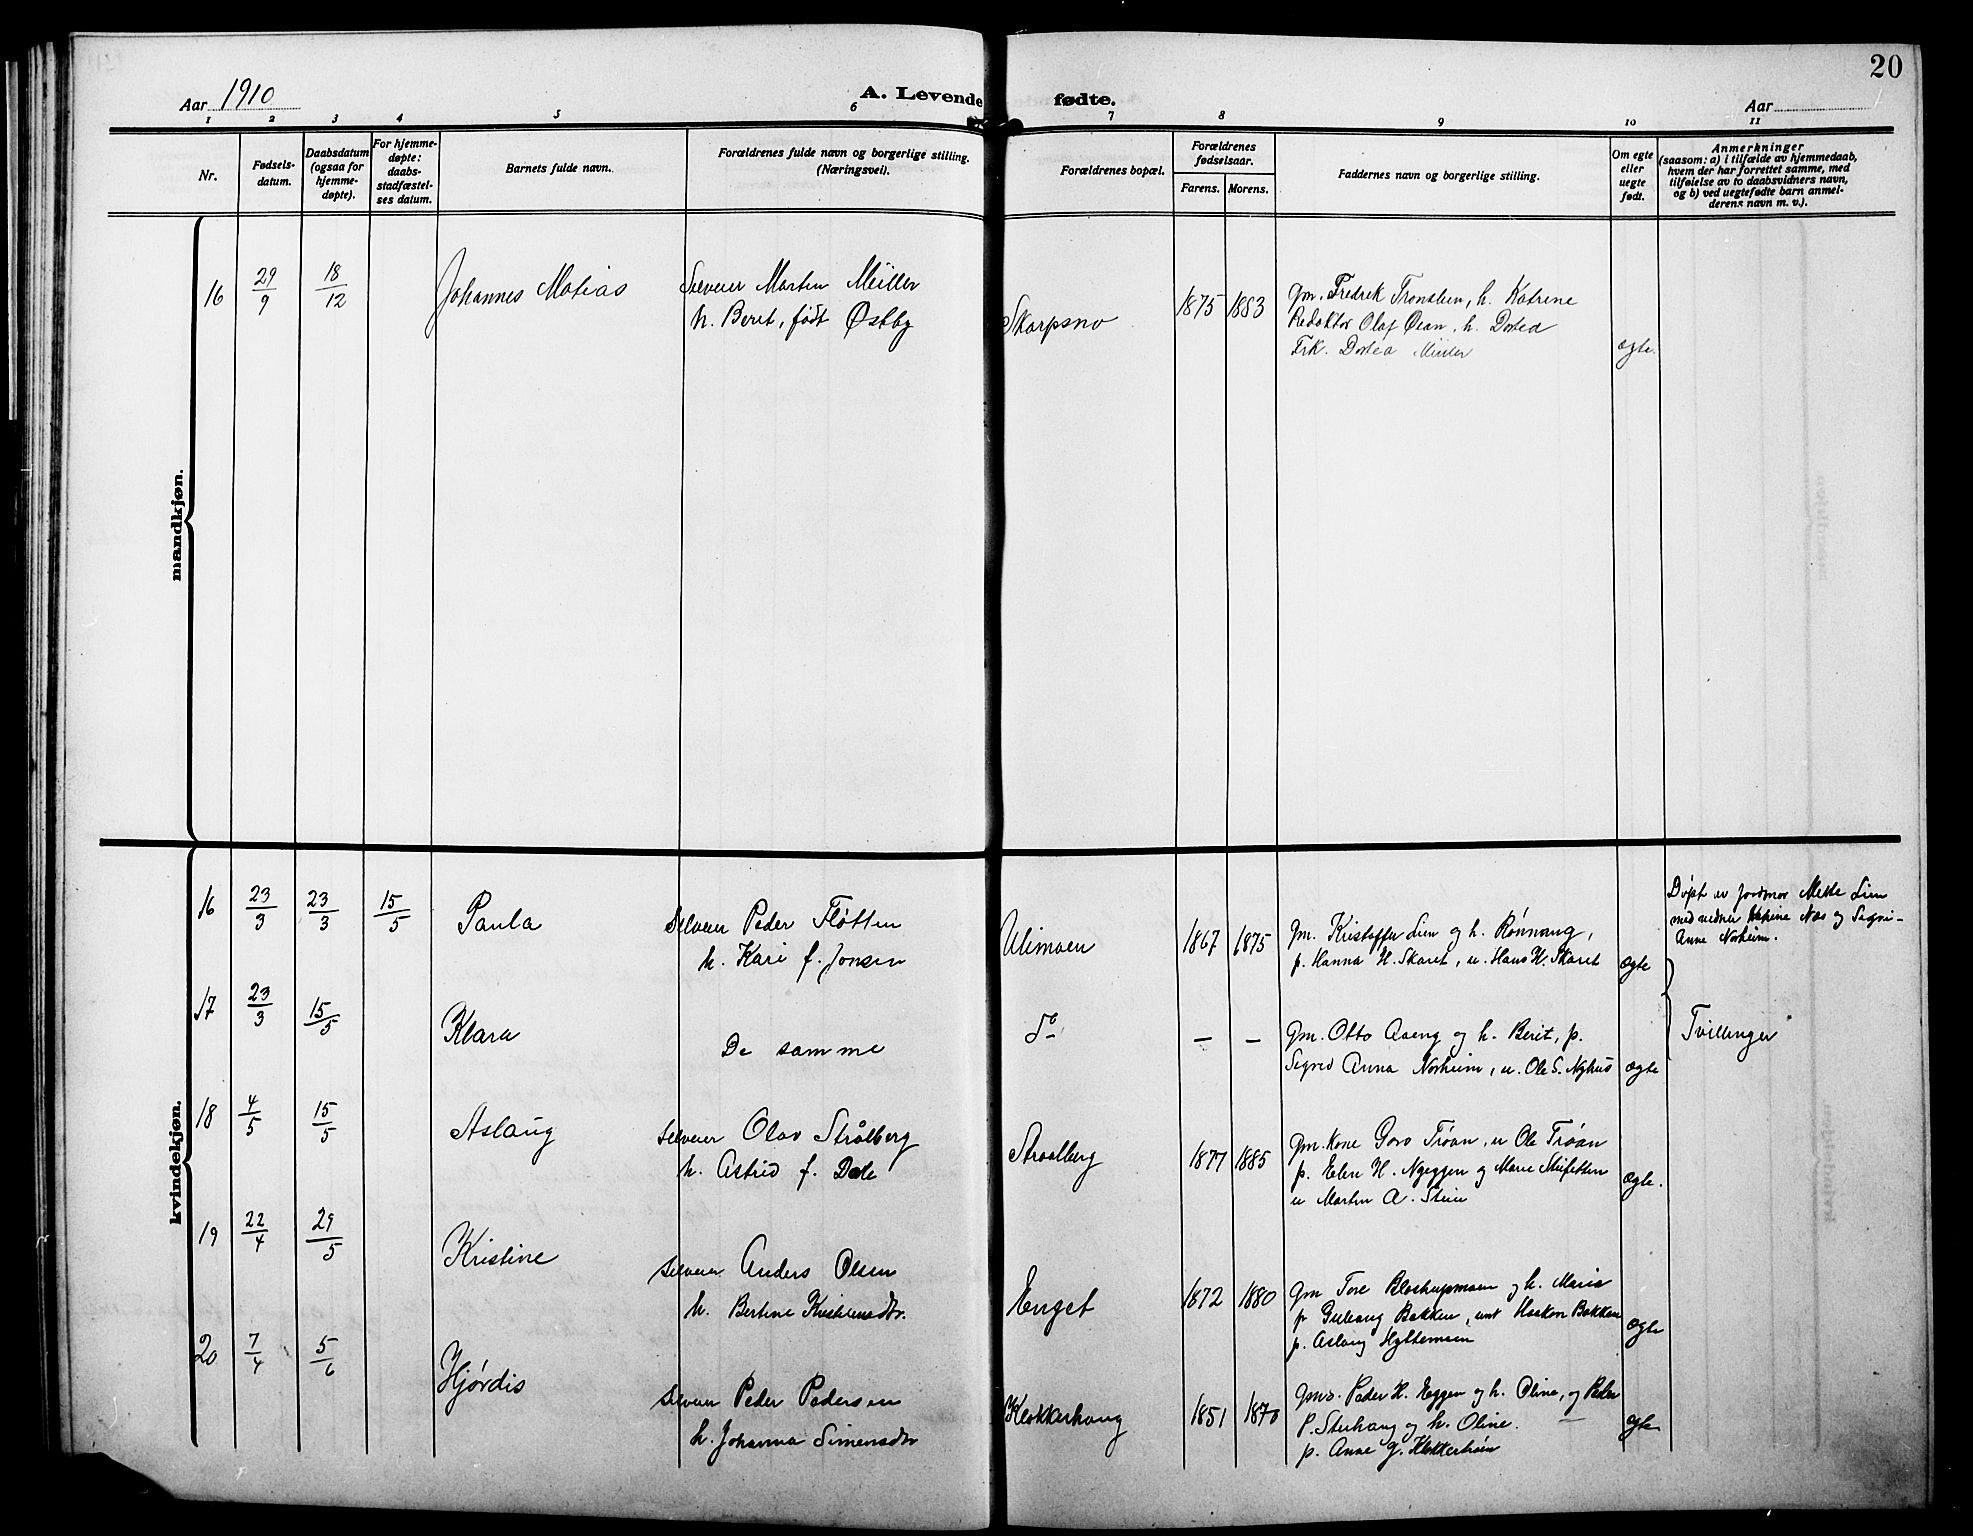 20
Aar 1910
A. Levende fødte.
Aar
1 2 3 4 5 6 7 8 9 10 11
Nr.
Fødsels-
datum.
Daabsdatum
(ogsaa for
hjemme-
døpte).
For hjemme-
døpte:
daabs-
stadfæstel-
ses datum.
Barnets fulde navn.
Forældrenes fulde navn og borgerlige stilling.
(Næringsvei).
Forældrenes bopæl.
Forældrenes
fødselsaar.
Farens. Morens.
Faddernes navn og borgerlige stilling.
Om egte
eller
uegte
født.
Anmerkninger
(saasom: a) i tilfælde av hjemmedaab,
hvem der har forrettet samme, med
tilføielse av to daabsvidners navn,
og b) ved uegtefødte barn anmel-
derens navn m. v.).
mandkjøn.
16 29/9 18/12 Johannes Matias
Selveier Marten Müller
h. Beret, født Østby
Skarpsno
1875 1883
Gm. Fredrek Tronslien, h. Katrine
Redaktør Olaf Øian, h. Dortea
Frk. Dortea Müller
ægte.
kvindekjøn.
16 23/3 23/3 15/5 Paula
Selveier Peder Fløtten
h. Kari f. Jonsen
Ulimoen
1867 1875
Gm. Kristoffer Lien og h. Rønnaug,
p. Hanna H. Skaret, u. Hans H. Skaret
ægte
Døpt av Jordmor Mette Lien
med vidner Næs og
Anne Norheim.
17 23/3 15/5 Klara
De samme
do
— —
Gm. Otto Aseng og h. Berit, p.
Sigrid Anna Norheim, u. Ole S. Nyhus
ægte
Tvillinger
18 4/5 15/5 Aslaug
Selveier Olav Strålberg
h. Astrid f. Dale
Straalberg
1877 1885
Gm. Kone Goro Trøan, u Ole Trøan
p. Elen H. Nyeggen og Marie
u Marten A. Steien
ægte.
19 22/4 29/5 Kristine
Selveier Anders Olsen
h. Bertine Kristensdtr.
Enget
1872 1880
Gm Tore og h. Marie
p Gulaug Bakken, umt Haakon Bakken
p. Aslaug Hyltemoen
ægte
20 7/4 5/6 Hjørdis
Selveier Peder Pedersen
h. Johanna Simensdtr
Klokkerhaug
1851 1870
Gms. Peder H. Eggen og h. Oline, og Peder
P. Sterhaug og h. Oline. —
p. Anne G. Klokkerhøien
ægte